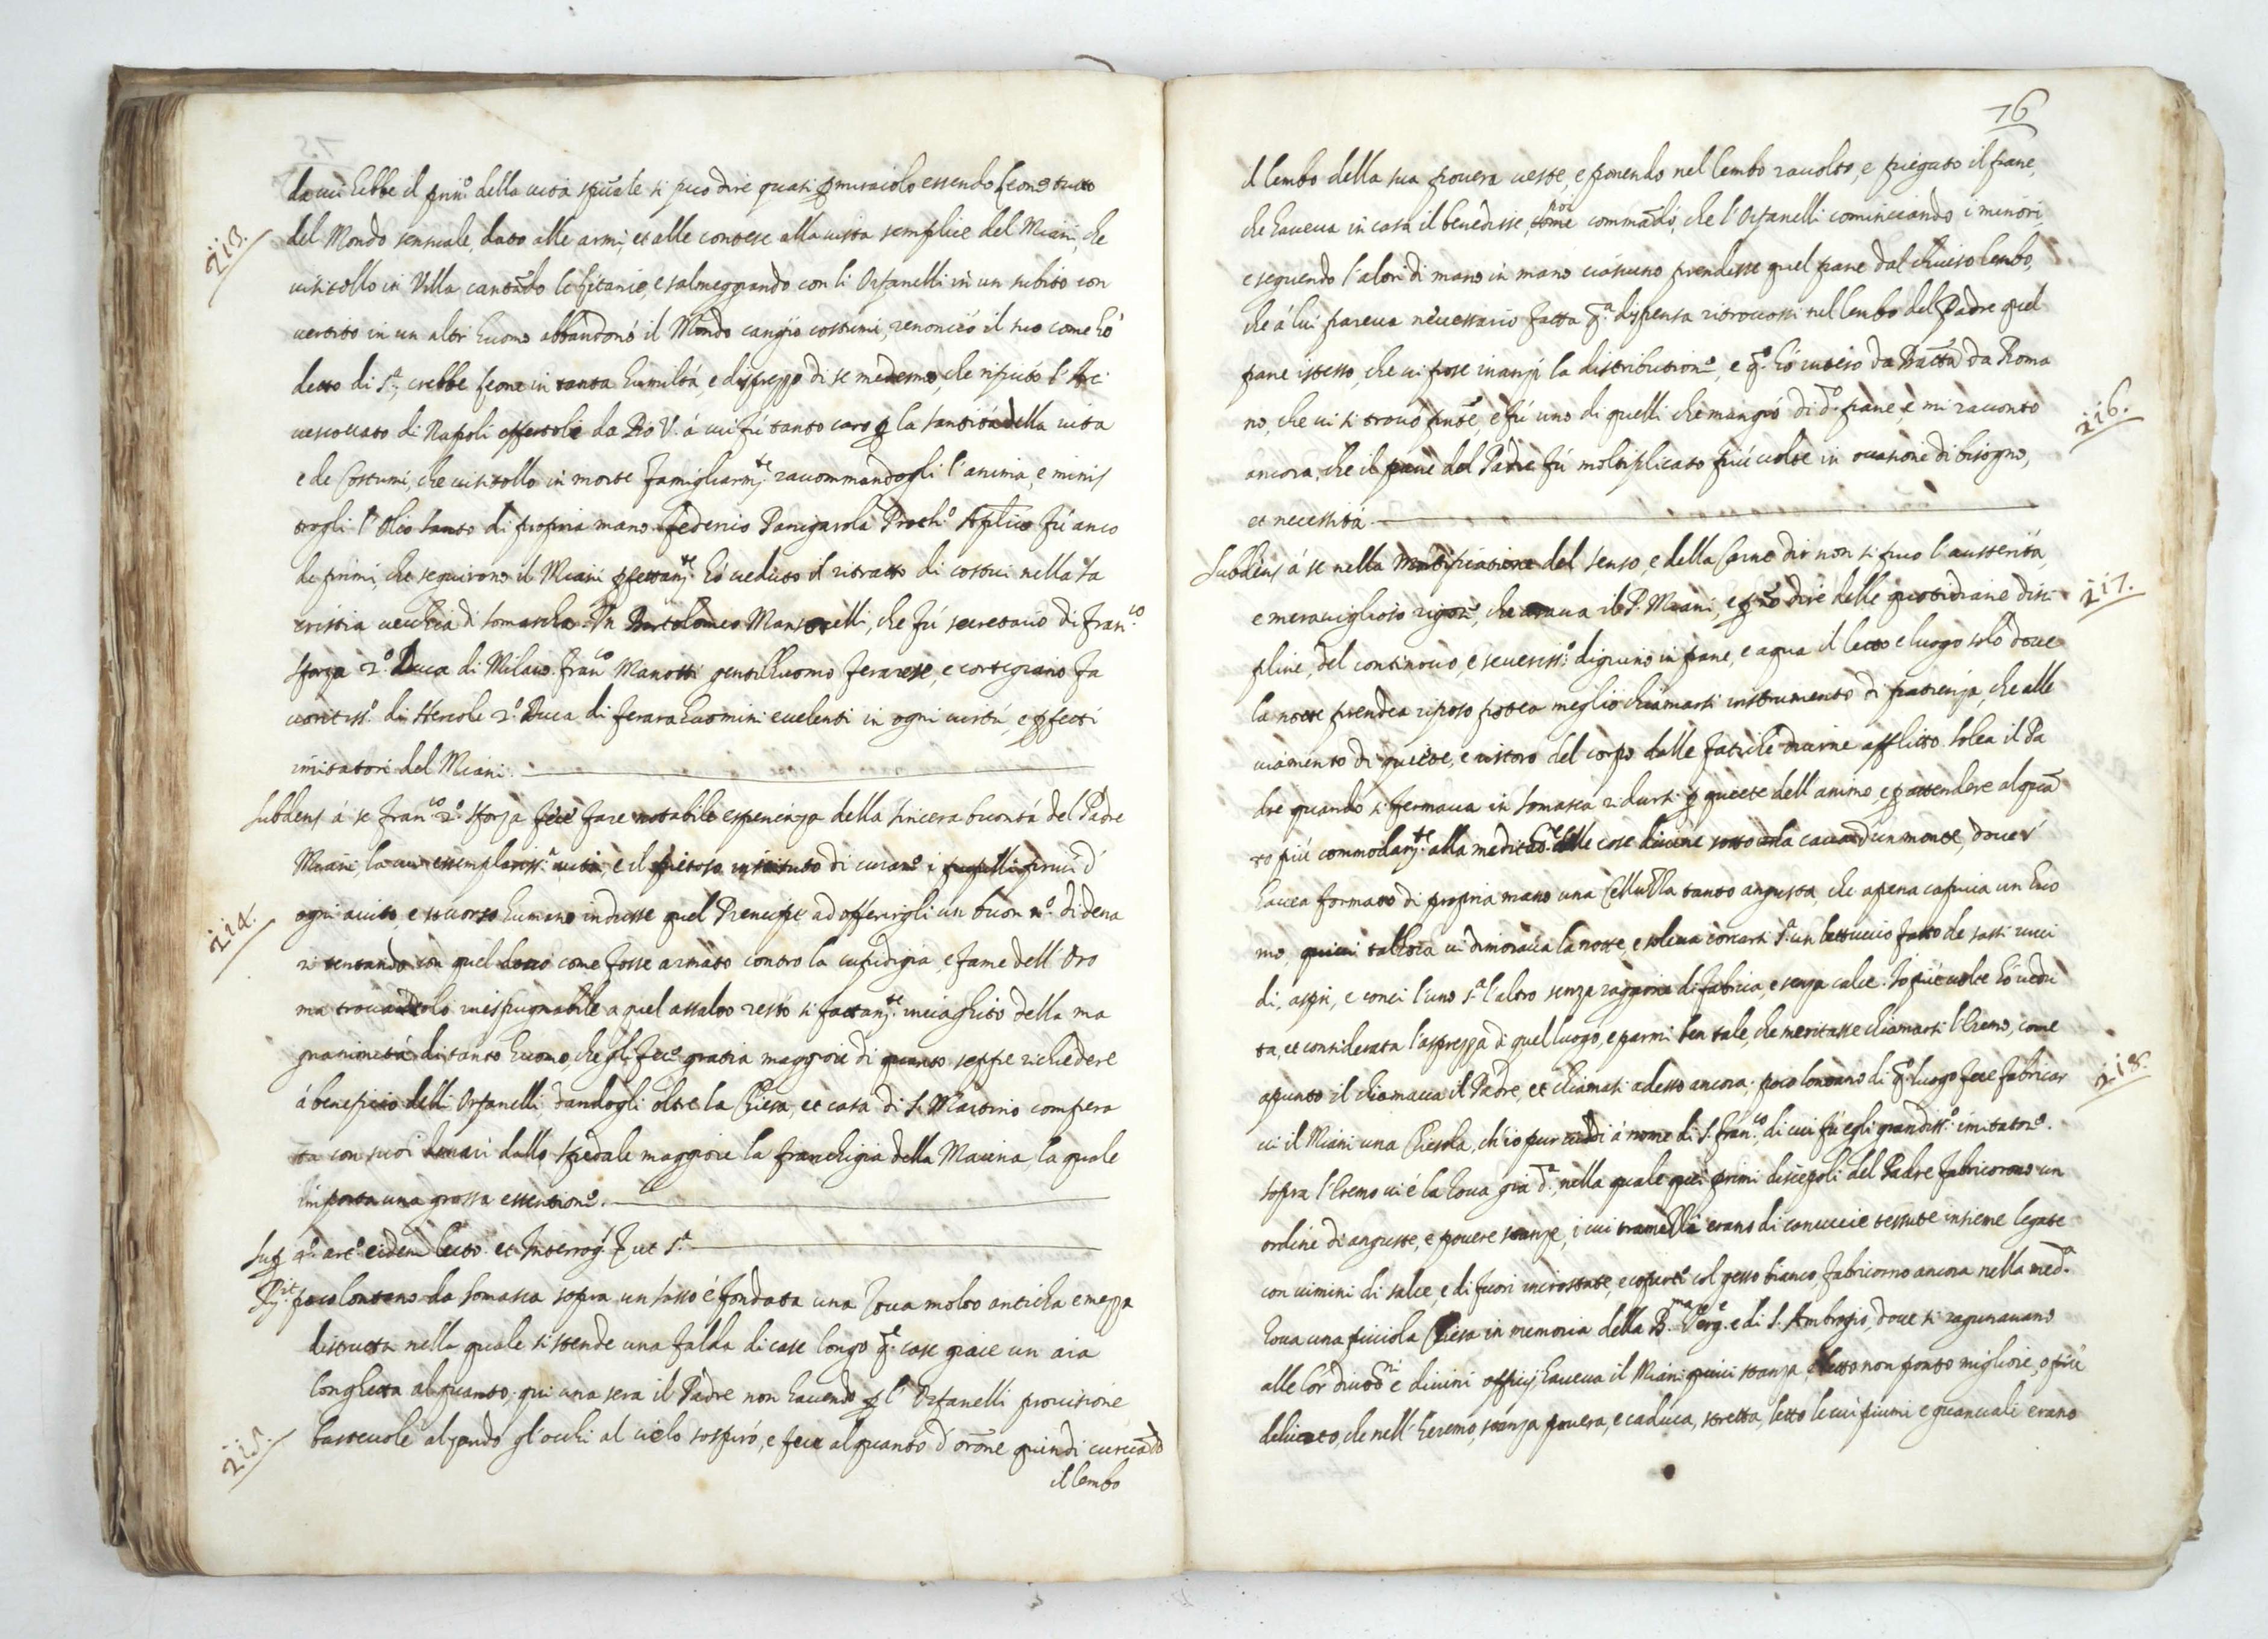 da cui hebbe il prin.º della vita spūale si puo dire quasi p miracolo essendo Leone tutto
213.
del Mondo sensuale, dato alle armi, et alle contese alla vista semplice del Miani, che
visitollo in Villa cantādo le litanie, e salmeggiando con li Orfanelli in un subito con
vertito in un altr' huomo abbandonó il Mondo cangió costumi, renonció il suo come hó
detto di s.ª, crebbe Leone in tanta humiltá, e disprezzo di se medemo, che rifiutó l'Arci
vescovato di Napoli offertole da Pio V. á cui fú tanto caro p la santitá della vita
e de Costumi, che visitollo in morte famigliarm.te raccommandogli l'anima, e minis
trogli l'Olio Santo di propria mano. Federico Panigarola Proth.º Aplico fú anco
de primi, che seguirono il Miani pfettam.te hó veduto il ritratto di costui nella sa
cristia vecchia di Somascha. Un Bartolomeo Mansonelli, che fú secretario di Fran.co
Sforza 2.º Duca di Milano. Fran.co Manotti gentilhuomo ferarese, e cortegiano fa
voritiss.º di Hercole 2.º Duca di ferara huomini eccelenti in ogni virtú, e pfecti
imitatori del Miani.
Subdens á se Fran.co 2.º Sforza fece fare notabile esperienza della sincera buontá del Padre
Miani, la cui essemplariss.ª vita, e il pietoso instituto di curare i pupilli privi d'
214.
ogni aiuto, e soccorso humano indusse quel Prencipe ad offerirgli un buon n.º di dena
ri tentando con quel come fosse armato contro la cupidigia, e fame dell'Oro
ma trovandolo inespugnabile a quel assalto restó si fattam.te invaghito della ma
gnanimitá di tanto huomo, che gli fece gratia maggiore di quanto seppe richiedere
á beneficio delli Orfanelli, dandogli oltre la Chiesa, et casa di S. Martino compera
ta con suoi denari dallo spedale maggiore la franchigia della Macina, la quale
importa una grossa essentione.
Sup 4.º art.º eidem lecto et Interrog. fuit s.ª
R.it poco lontano da Somasca sopra un sasso é fondata una roca molto anticha e mezza
distrutta nella quale si stende una falda di case longo q.e case giace un aia
longhetta alquanto, qui una sera il Padre non havendo p l'Orfanelli provisione
215.
bastevole alzando gl'occhi al cielo sospiró, e fece alquanto d'orōne quindi curvādo
il lembo
76
il lembo della sua povera veste, e ponendo nel lembo racolto, e piegato il pane,
che haveva in casa il benedisse, come poi commādó, che l'Orfanelli cominciando i minori,
e seguendo l'altri di mano in mano ciascuno prendesse quel pane dal chiuso lembo,
che á lui pareva necessario fatta q.ª dispensa ritrovossi nel lembo del Padre quel
pane istesso, che vi pose inanzi la distributione, e q.º hó inteso da Battā da Roma
no, che vi si trovó pnte, e fú uno di quelli che mangió di d.º pane, e mi raccontó
216.
ancora, che il pane del Padre fú moltiplicato piú volte in occasione di bisogno,
et necessitá
Subdens á se nella Mortificatione del senso, e della Carne dir non si puo l'austeritá,
217.
e meraviglioso rigore, che usava il P. Miani, e p nō dire delle quotidiane disci
pline, del continovo, e severiss.º digiuno in pane, e aqua il letto e luogo solo dove
la notte prendea riposo potea meglio chiamarsi instrumento di patienza, che alle
viamento di quiete, e ristoro del corpo dalle fatiche diurne afflitto. Solea il Pa
dre quando si fermava in Somasca ridursi p quiete dell'animo, e p attendere alquā
to piú commodam.te alla meditat.ne delle cose divine sotto una cava d'un monte, dove s'
havea formato di propria mano una Celluzza tanto angusta, che apena capiva un huo
mo, quivi tallora vi dimorava la notte, e soleva corcarsi s.ª un lettuccio fatto de sassi ruvi
di, aspri, e conci l'uno s.ª l'altro senza raggione di fabrica, e senza calce. Io piú volte hó vedu
ta, et considerata l'asprezza di quel luogo, e parmi ben tale, che meritasse chiamarsi l'Eremo, come
218.
apunto il chiamava il Padre, et chiamasi adesso ancora; poco lontano di q.º luogo fece fabricar
vi il Miani una Chiesola, ch'io pur viddi á nome di S. Fran.co, di cui fú egli grandiss.º imitatore.
sopra l'Eremo vi é la Roca giá d.ª, nella quale quei primi discepoli del Padre fabricorono un
ordine di anguste, e povere stanze, i cui tramezzi erano di canuccie tessute insieme legate
con vimini di salce, e di fuori incrostate, e coperte col gesso bianco, fabricorno ancora nella med.ª
Roca una picciola Chiesa in memoria della B.ma Verg.e e di S. Ambrogio, dove si ragunavano
alle lor divot.ni e divini officij, haveva il Miani quivi stanza, e letto non ponto migliore, o piú
delicato, che nell'heremo, stanza povera, e caduca, stretta, letto le cui piume e guanciali erano